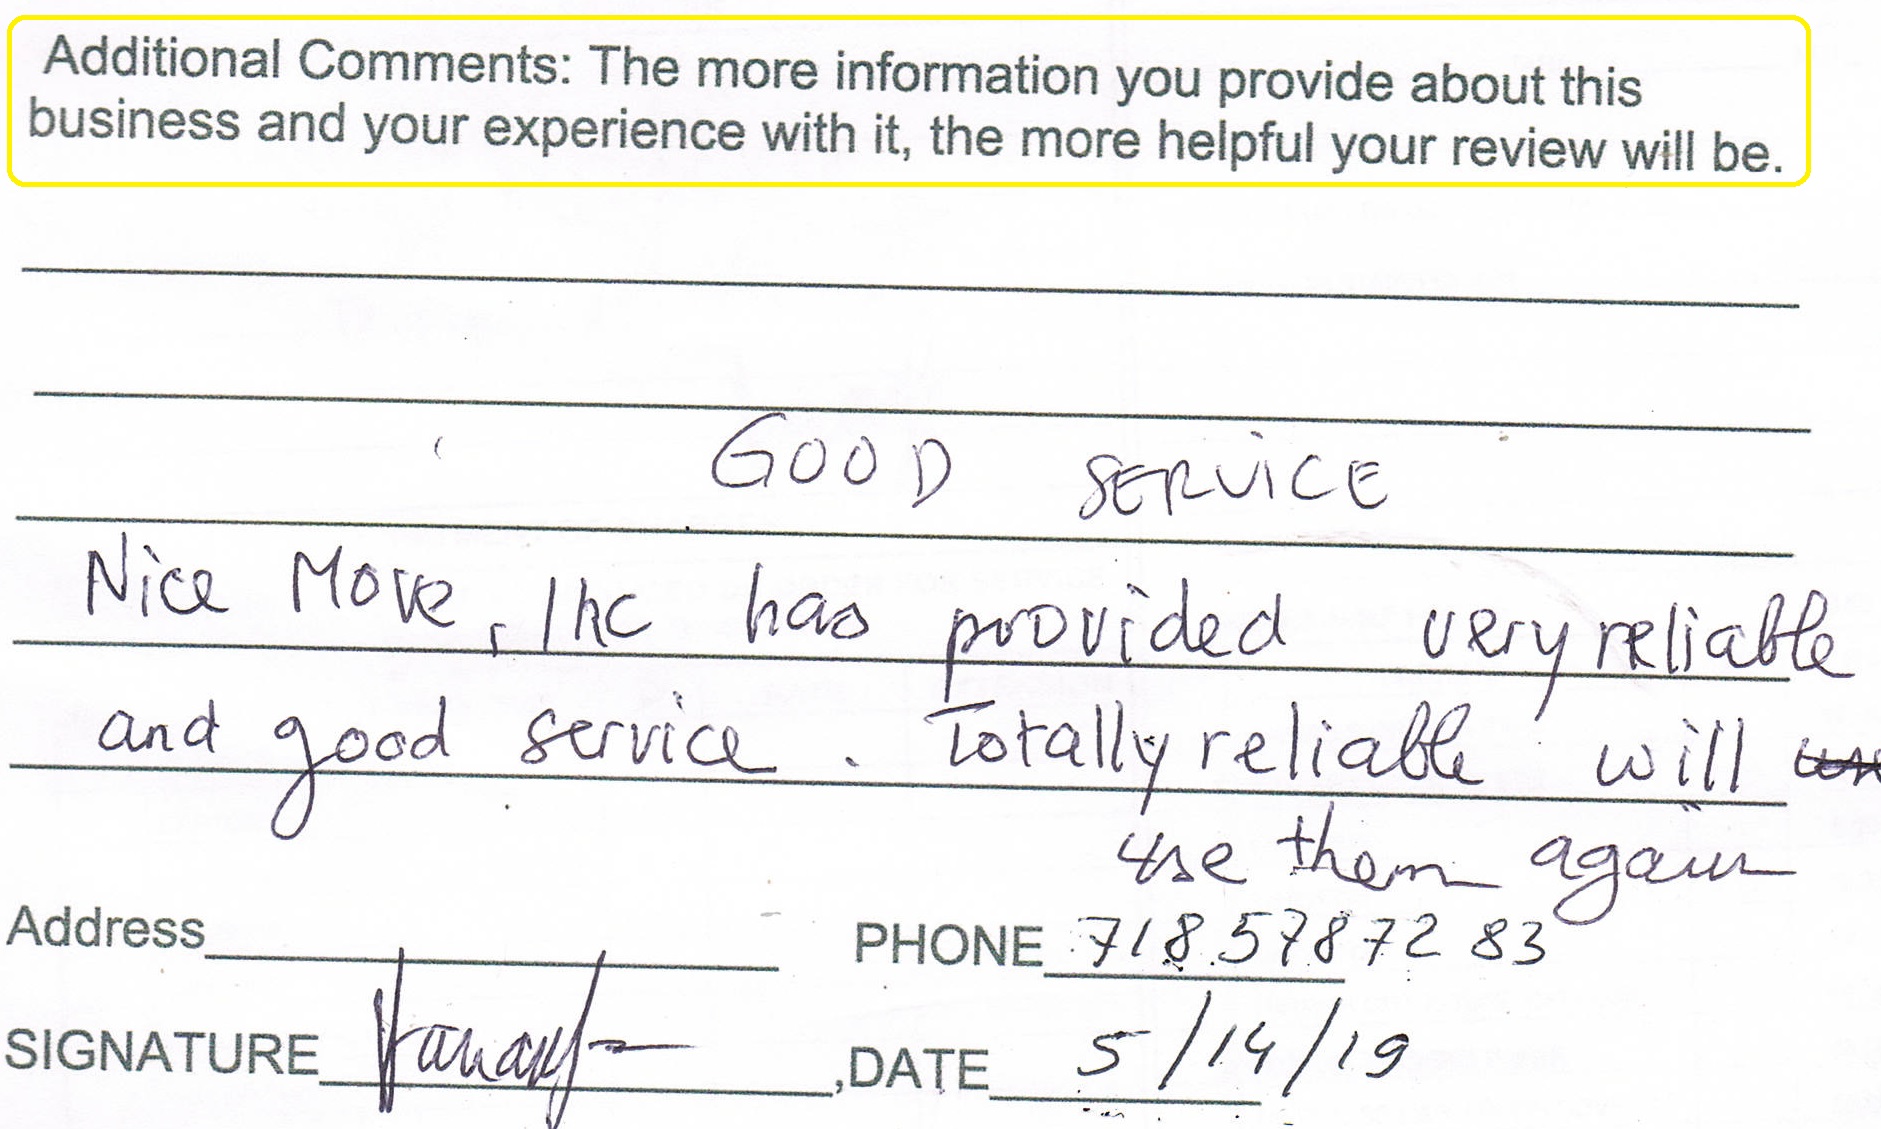 Additional Comments: The more information you provide about this
business and your experience with it, the more helpful your review will be.
GOOD SERVICE
Nice Move, Inc has provided very reliable
and good service. Totally reliable will
use them again
Address
PHONE 718 578 72 83
SIGNATURE
,DATE 5/14/19